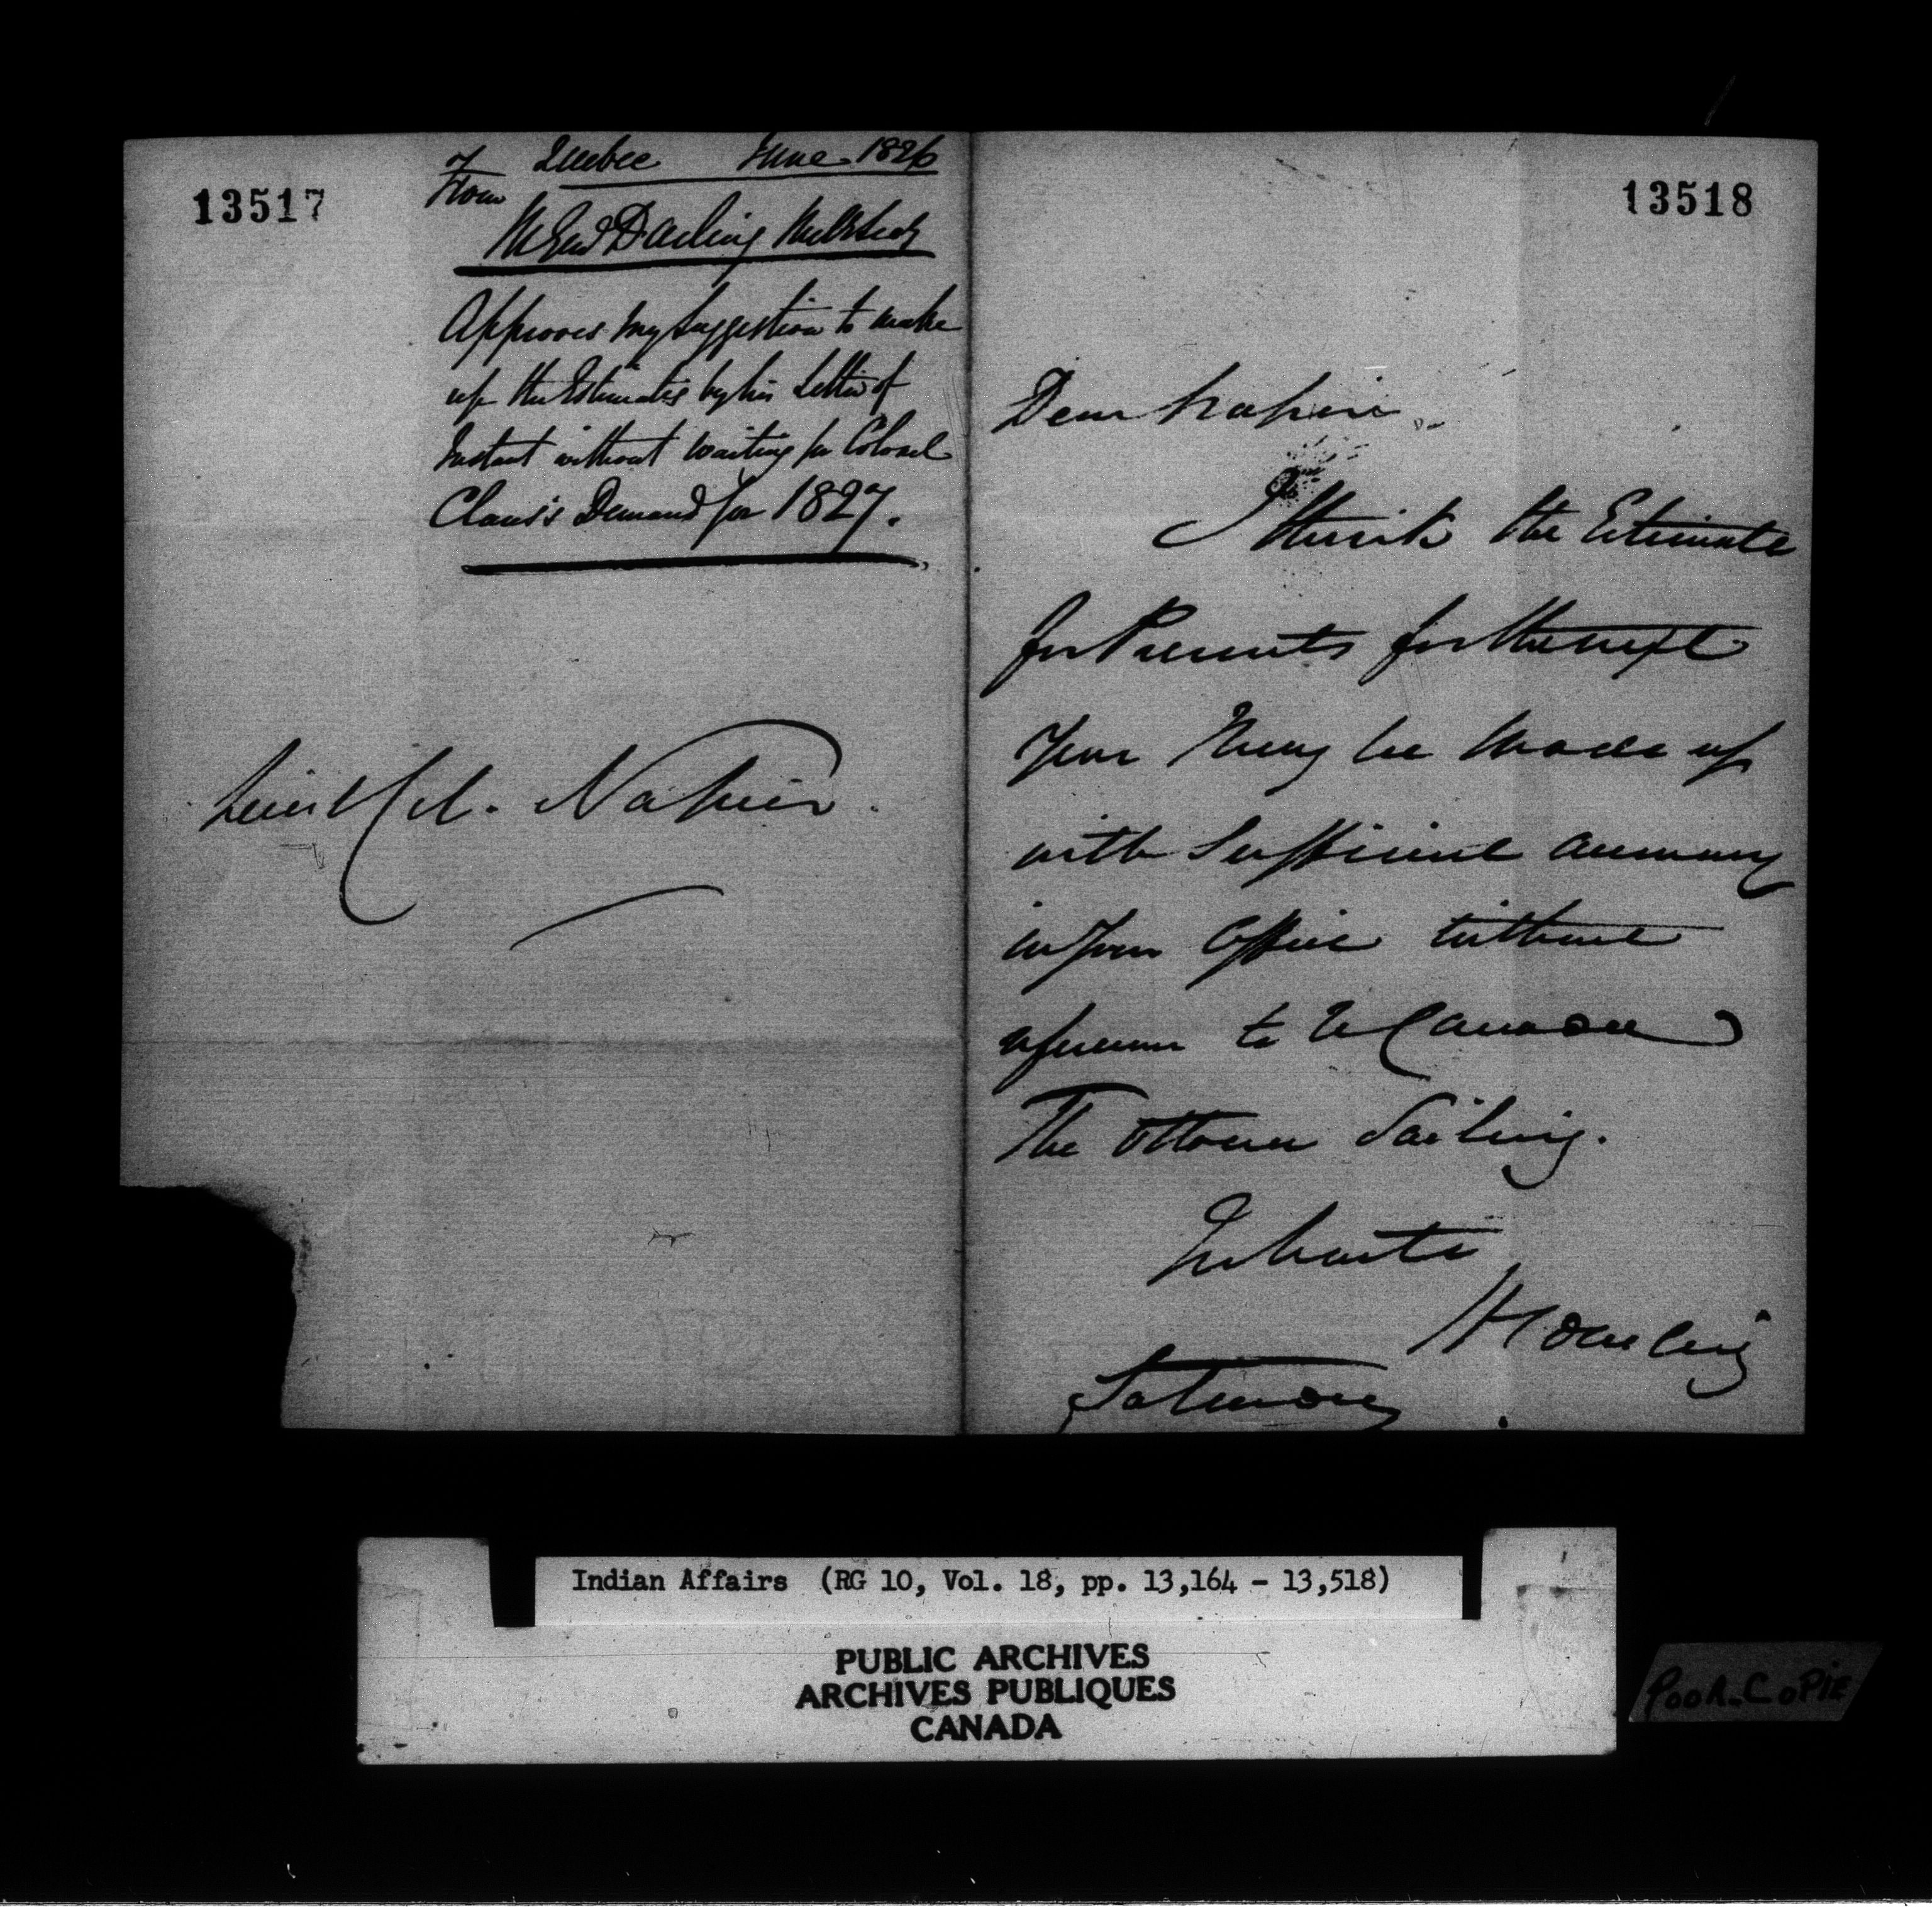 13517
Quebec June 1826
From
M Genl Darling Mil Secy
Approves my Suggestion to make
up the Estimates by his Letter of
Instant without waiting for Colonel
Claus's Demand for 1827.
Lieut Col. Napier.
13518
Dear Napier
I think the Estimate
for Presents for the next
year May be Made up
with Sufficient accuracy
in your Office without
reference to U Canada
The Ottawa Sailing.
In haste
H C Darling
Saturday
Indian Affairs (RG 10, Vol. 18, pp. 13,164 - 13,518)
PUBLIC ARCHIVES
ARCHIVES PUBLIQUES
CANADA
POOR COPIE